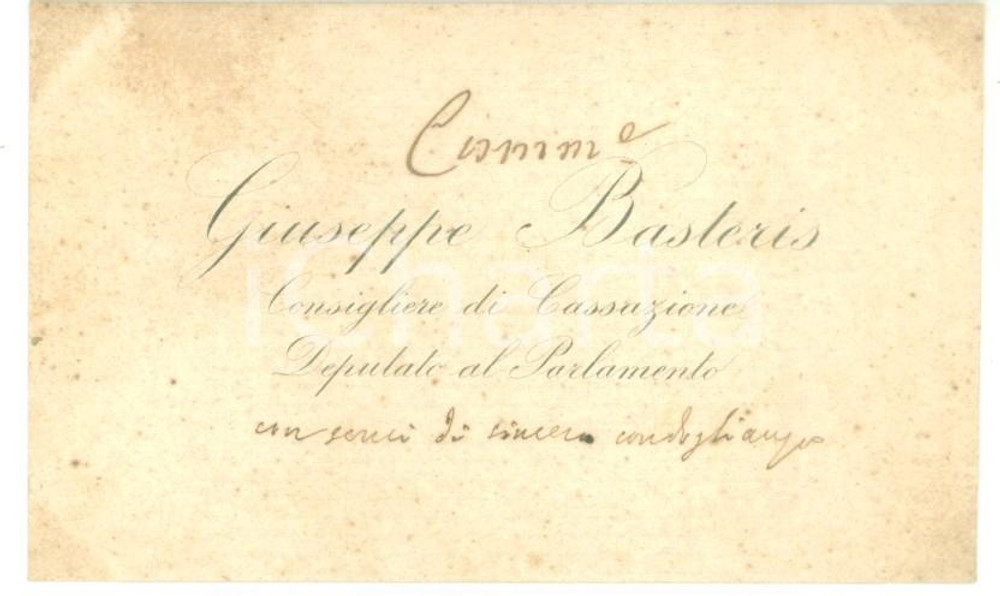 Comm.e
Giuseppe Basteris
Consigliere di Cassazione
Deputato al Parlamento
con sensi di sincera condoglianza
iCharta